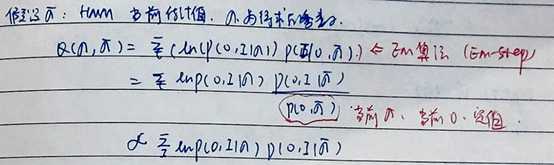 假设 λ̄: HMM 当前估计值. λ 为待求
Q(λ, λ̄) = Σ_I (ln(P(O,I|λ)) P(I|O,λ̄)) ← EM算法 (Em-step)
= Σ_I lnP(O,I|λ) P(O,I|λ̄)
P(O,λ̄) 当前λ、当前O、定值.
∝ Σ_I lnP(O,I|λ) P(O,I|λ̄)